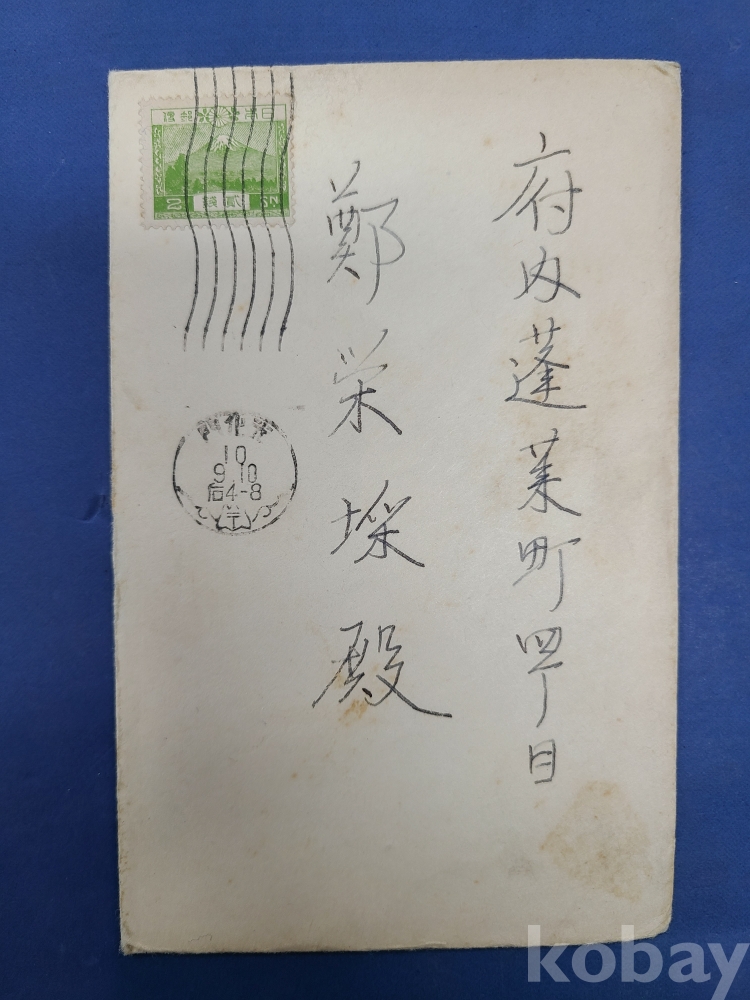 府内蓬莱町四丁目
鄭栄埰殿
日本帝國郵便
2 貳錢 SN
10
9 10
后4-8
kobay